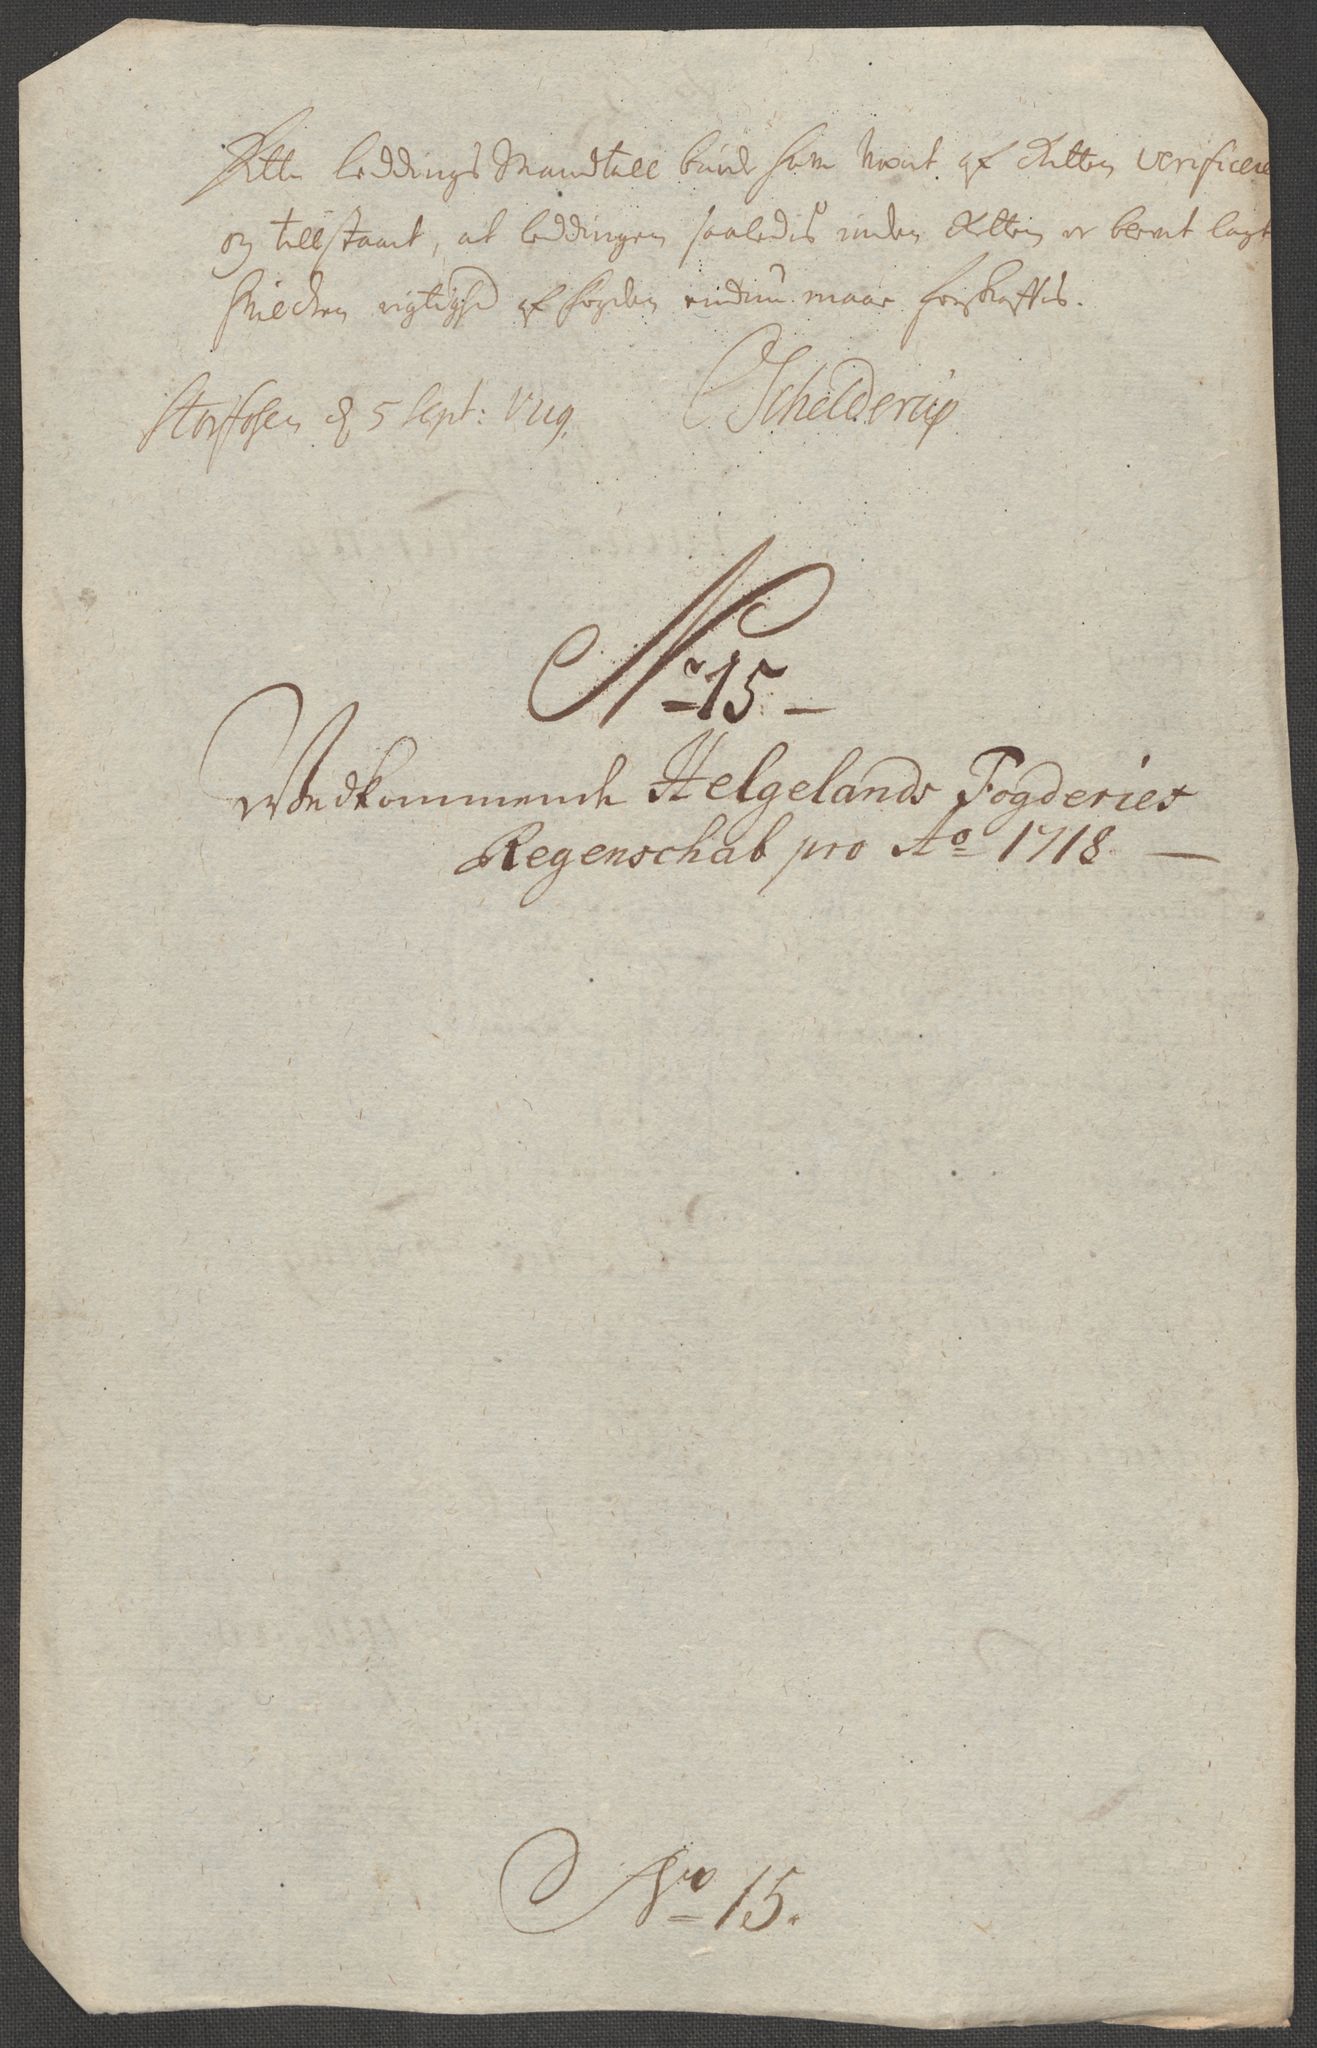 Dette leddings Mandtall burde have wæret af Retten verificeret
og tillstaaet, at leddingen saaledis inden Retten er blevet lagt
hvilchen rigtighed af fogden endnu maae forskaffis.
Storfosen d 5 Sept: 1719.
CSchelderup
No 15 -
Wedkommende Helgelands Fogderies
Regenschab pro Ao 1718 —
No 15.